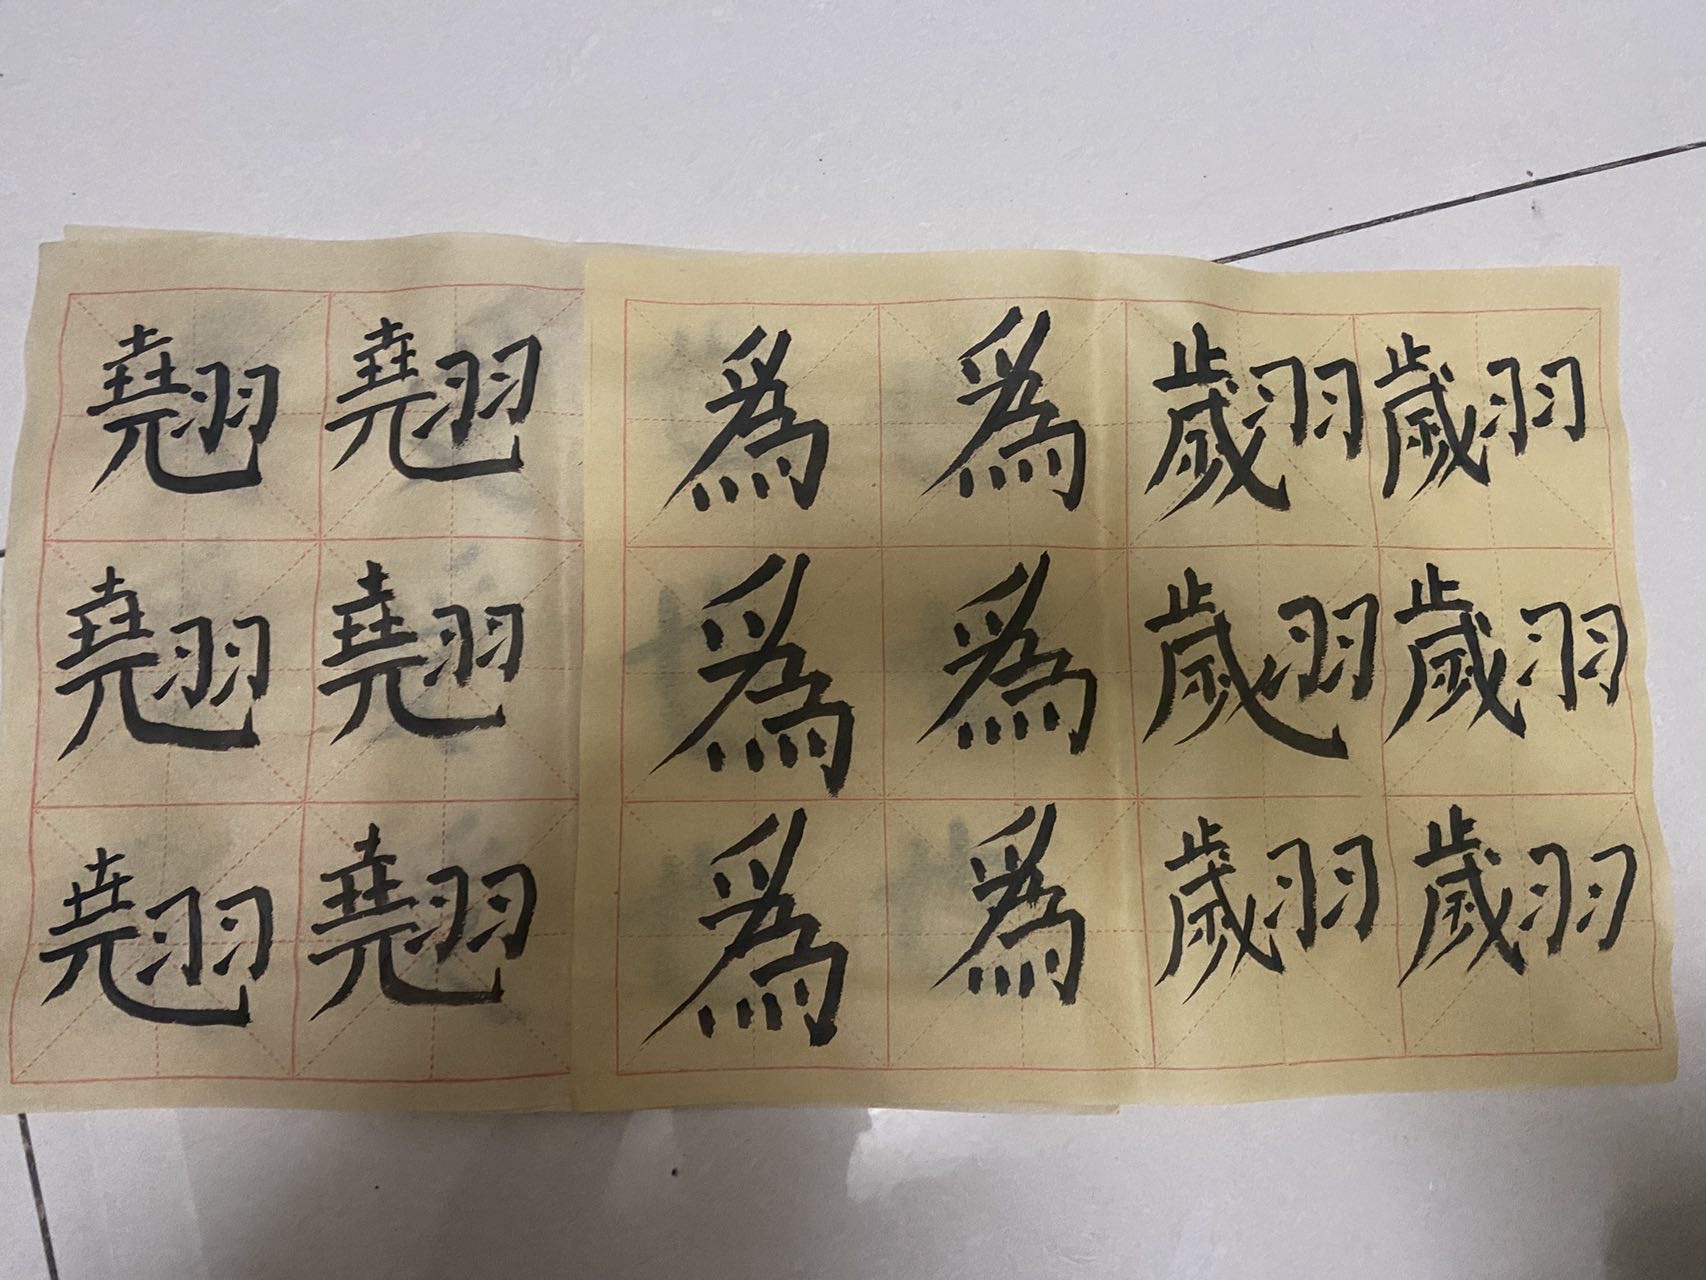 翽翽翽
翽翽翽
爲爲爲
爲爲爲
翹翹翹
翹翹翹